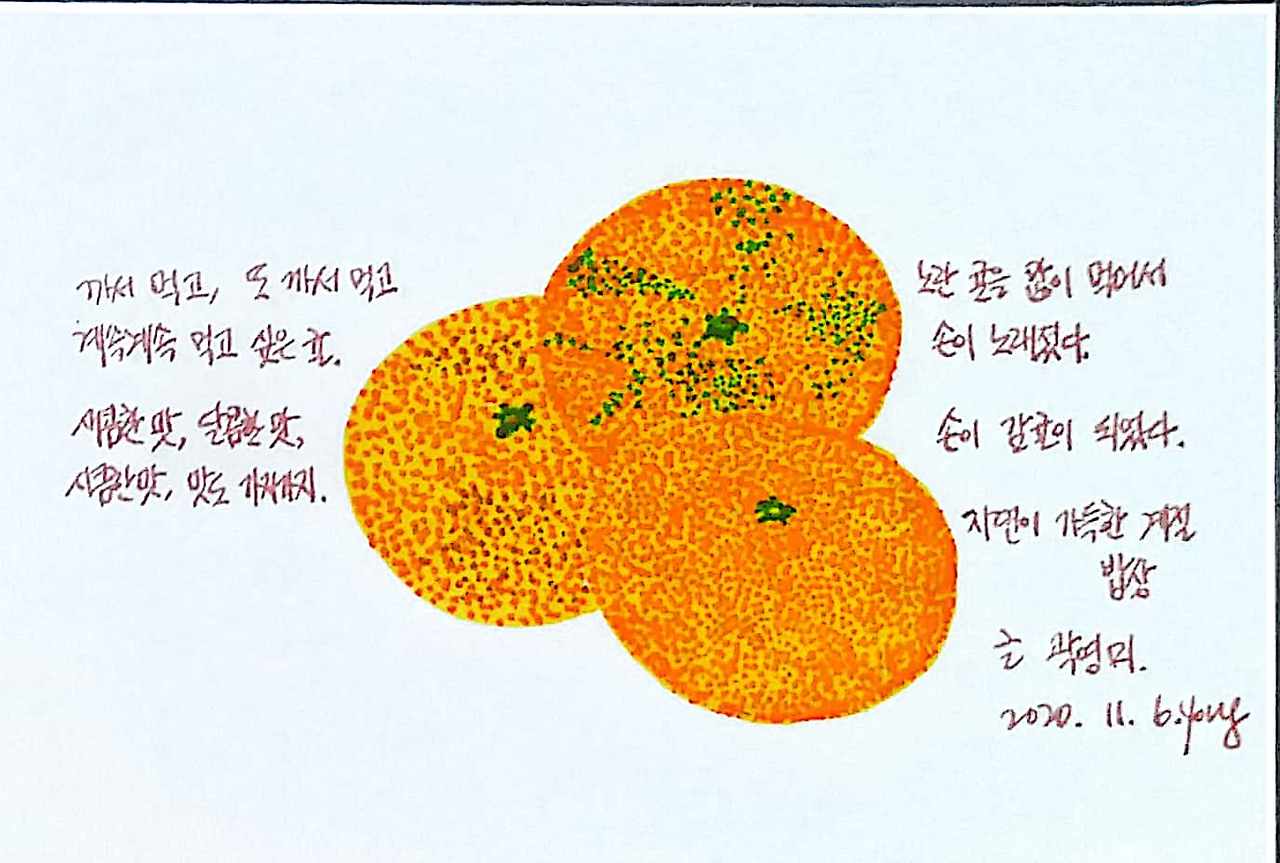 까서 먹고, 또 까서 먹고
계속계속 먹고 싶은 귤.
새콤한 맛, 달콤한 맛,
시큼한 맛, 맛도 가지가지.
노란 귤을 많이 먹어서
손이 노래졌다.
손이 감귤이 되었다.
자연이 가득한 계절
밥상
글 곽영미.
2020. 11. 6. yong